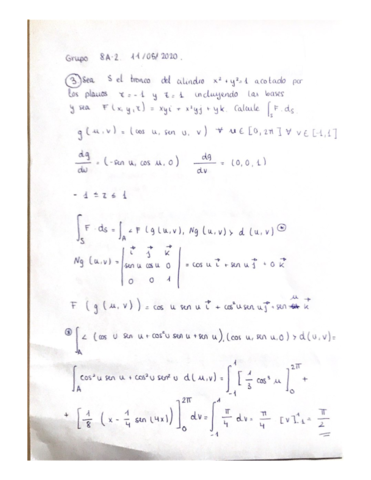 Grupo 8A-2. 11/05/2020.
③ Sea S el tronco del cilindro x² + y² = 1 acotado por
los planos z = -1 y z = 1 incluyendo las bases
y sea F(x, y, z) = xyi + x²yj + yk. Calcule ∫_S F·ds
g(u,v) = (cos u, sen u, v) ∀ u ∈ [0, 2π] ∀ v ∈ [-1, 1]
dg/du = (-sen u, cos u, 0) dg/dv = (0, 0, 1)
- 1 ≤ z ≤ 1
∫_S F·ds = ∫_A < F(g(u,v), Ng(u,v) > d(u,v) ⊛
Ng(u,v) = | i j k |
| sen u cos u 0 | = cos u i + sen u j + 0 k
| 0 0 1 |
F(g(u,v)) = cos u sen u i + cos² u sen u j + sen u k
⊛ ∫_A < (cos u sen u + cos² u sen u + sen u), (cos u, sen u, 0) > d(u,v) =
∫_A cos² u sen u + cos² u sen² u d(u,v) = ∫_{-1}^{1} [1/3 cos³ u]_0^{2π} +
+ [1/8 (x - 1/4 sen(4x))]_0^{2π} dv = ∫_{-1}^{1} π/4 dv = π/4 [v]_{-1}^{1} = π/2